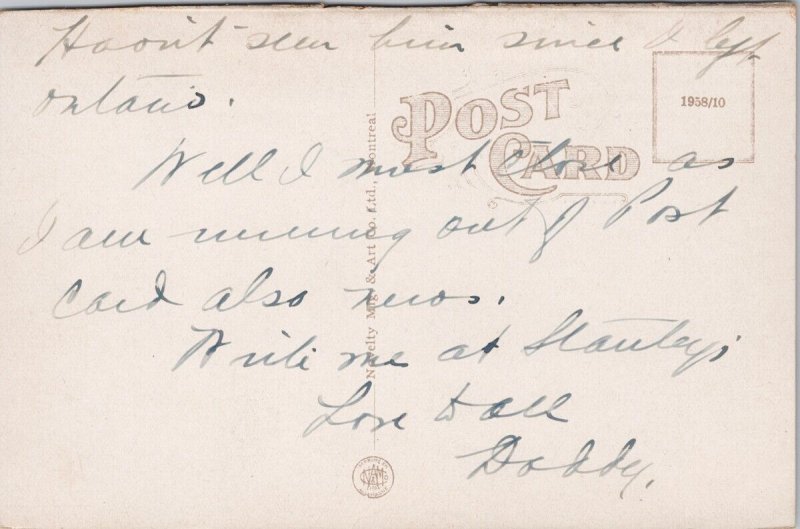 Haven't seen him since I left
Ontario.
Well I must close as
I am running out of Post
Card also news.
Write me at Stanley's
Love to all
Doddy.
POST
CARD
1958/10
Novelty Mfg & Art Co., Ltd., Montreal